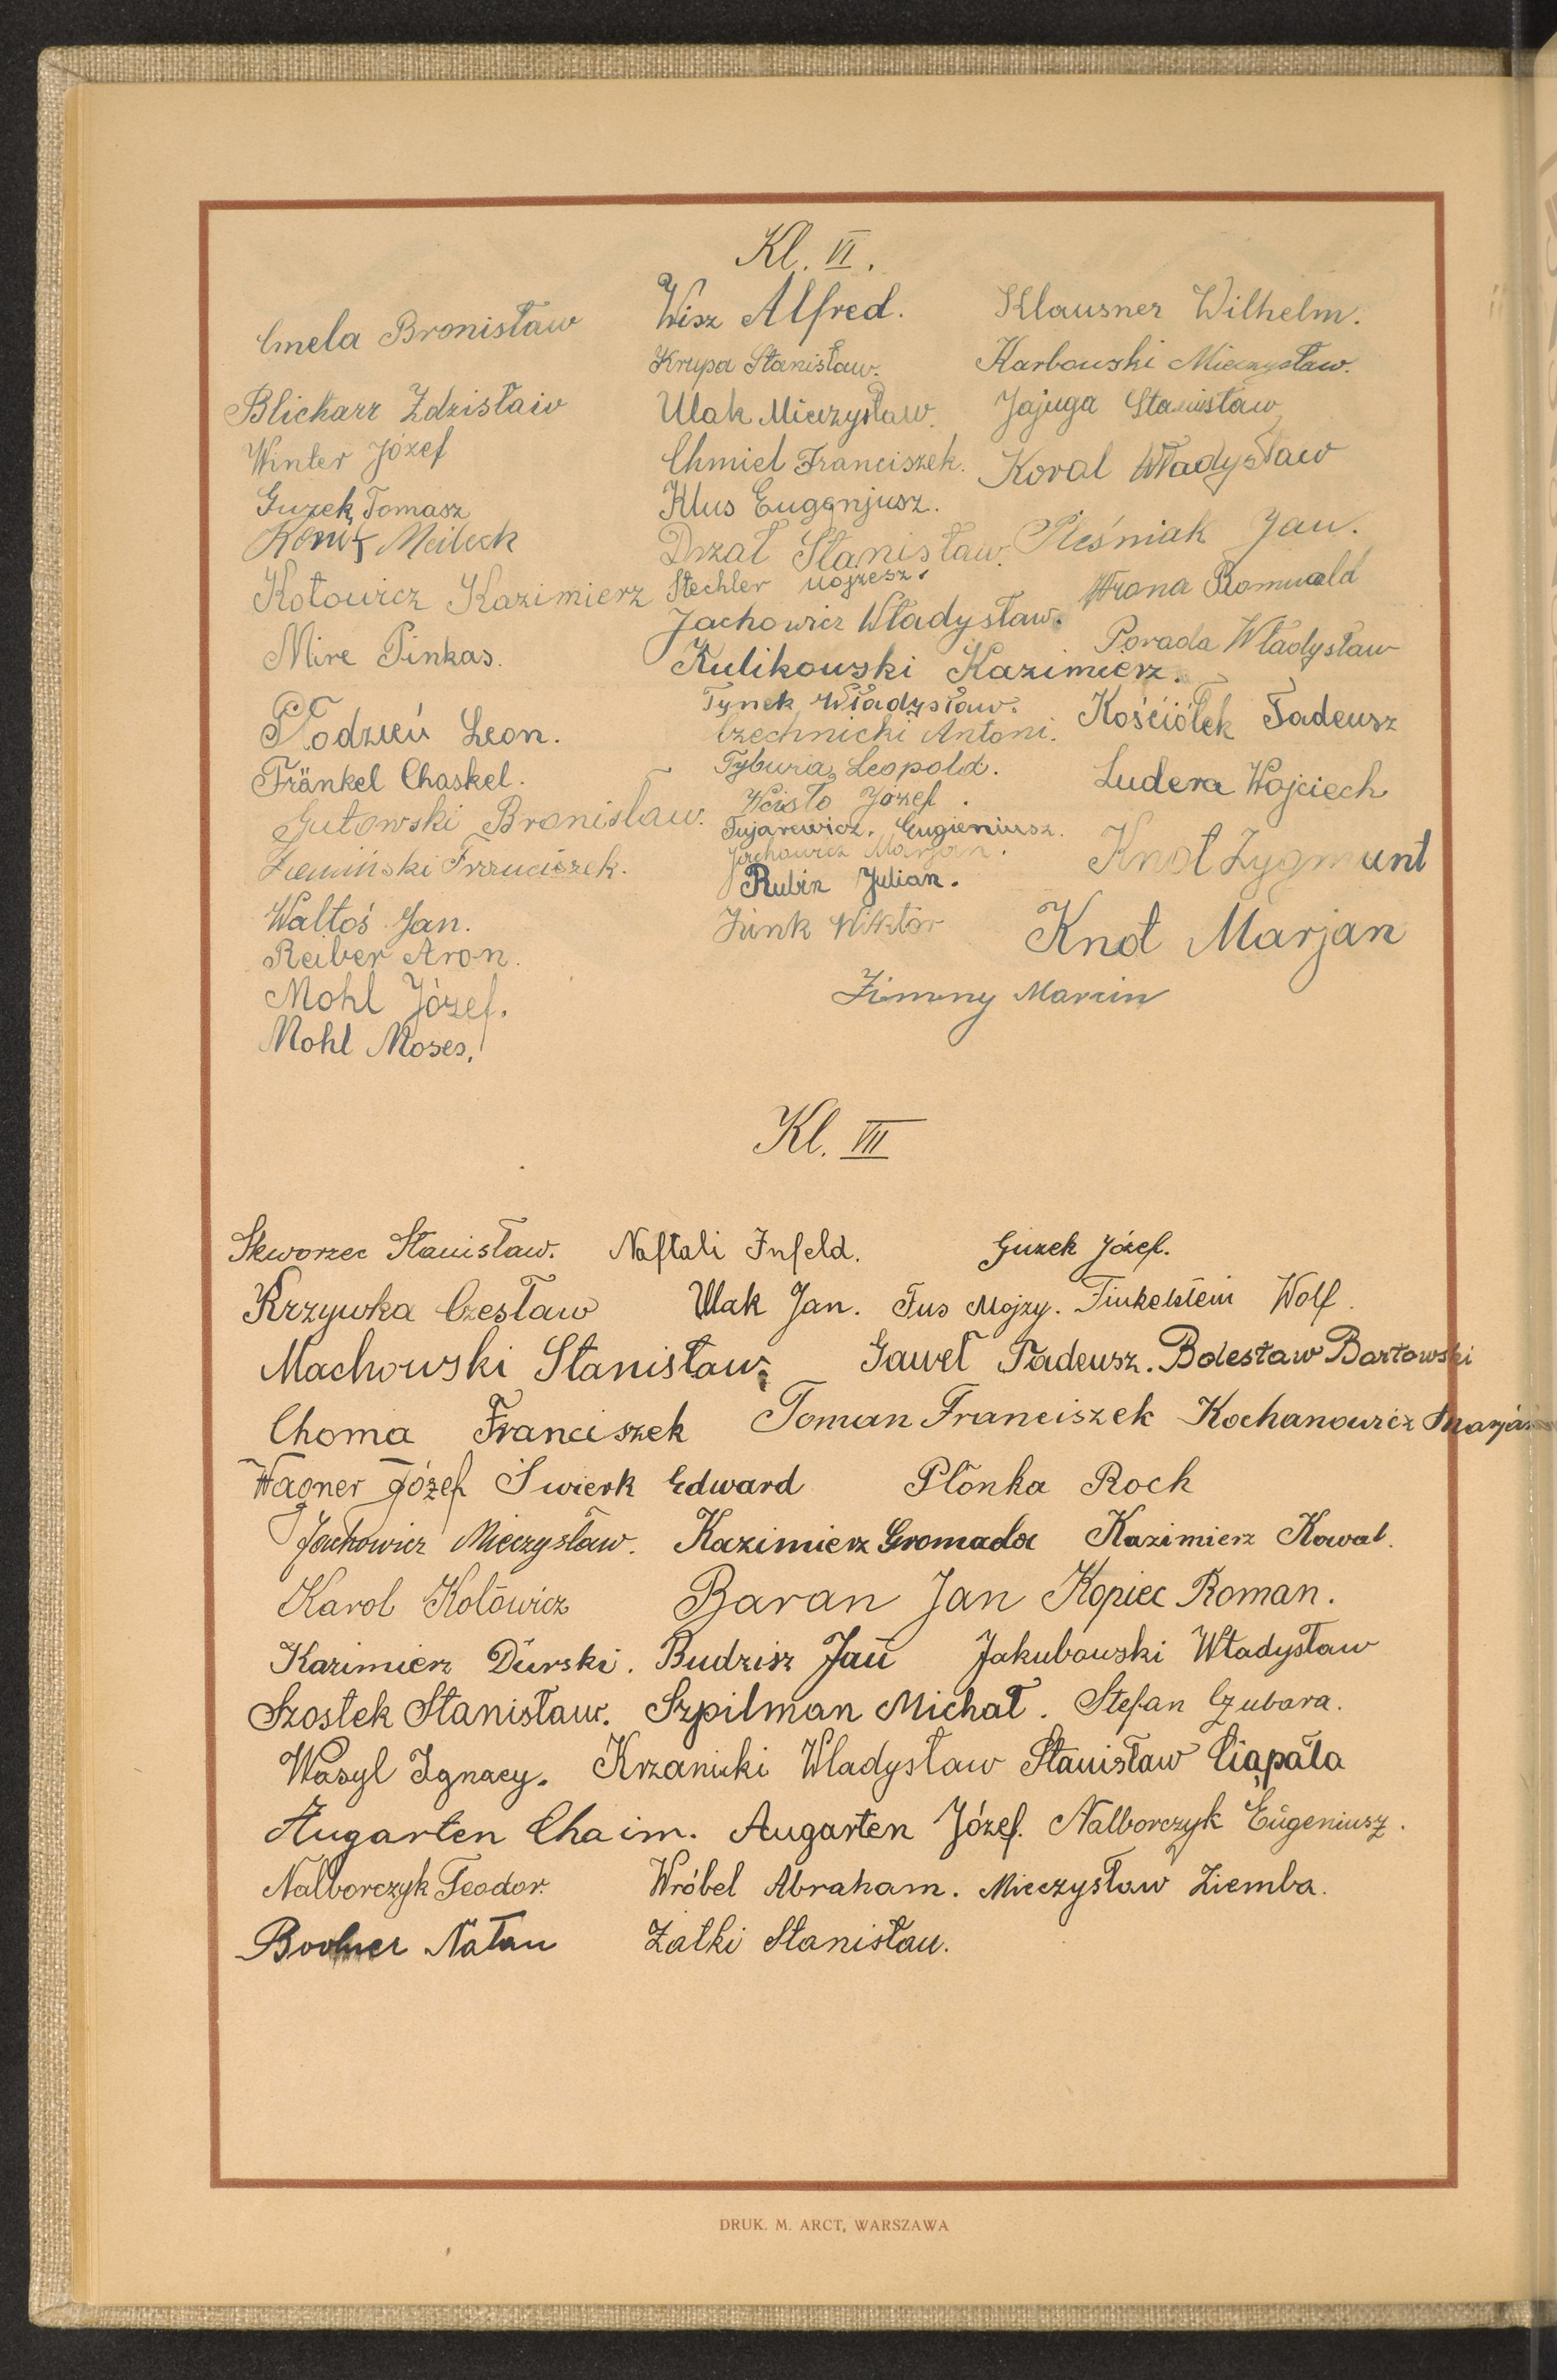 Kl. VI.
Cmela Bronisław
Blicharz Zdzisław
Winter Józef
Guzek Tomasz
Meilech
Kotowicz Kazimierz
Mire Pinkas.
Płodzień Leon.
Fränkel Chaskel.
Gutowski Bronisław.
Ziemiński Franciszek.
Waltoś Jan.
Reiber Aron.
Mohl Józef.
Mohl Moses.
Wisz Alfred.
Krupa Stanisław.
Ulak Mieczysław.
Chmiel Franciszek.
Klus Eugenjusz.
Drzał Stanisław.
Stechler Mojzesz.
Jachowicz Władysław.
Kulikowski Kazimierz.
Tynek Władysław.
Czechnicki Antoni.
Tybura Leopold.
Wcisło Józef.
Tujarewicz. Eugieniusz.
Jachowicz Marjan.
Rubin Julian.
Zink Wiktor
Zimny Marcin
Klausner Wilhelm.
Karbowski Mieczysław.
Jajuga Stanisław
Koval Władysław
Pleśniak Jan.
Wrona Romuald
Porada Władysław
Kościółek Tadeusz
Ludera Wojciech
Knot Zygmunt
Knot Marjan
Kl. VII
Skworzec Stanisław. Naftali Infeld. Guzek Józef.
Krzywka Czesław Ulak Jan. Fus Mojzy. Finkelstein Wolf.
Machowski Stanisław. Gaweł Tadeusz. Bolesław Bartowski
Choma Franciszek Toman Franciszek Kochanowicz Marjan
Wagner Józef Świerk Edward Płonka Roch
Jachowicz Mieczysław. Kazimierz Gromada Kazimierz Kowal.
Karol Kołowicz Baran Jan Kopiec Roman.
Kazimierz Durski. Budzisz Jan Jakubowski Władysław
Szostek Stanisław. Szpilman Michał. Stefan Czubara.
Wasyl Ignacy. Krzanicki Władysław Stanisław Ciąpała
Augarten Chaim. Augarten Józef. Nalborczyk Eugeniusz.
Nalborczyk Teodor. Wróbel Abraham. Mieczysław Ziemba.
Natan Załki Stanisław.
DRUK. M. ARCT, WARSZAWA